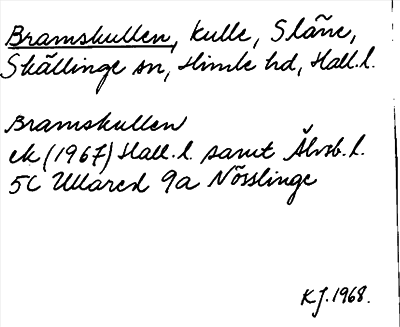 Bramskullen, kulle, Slåne,
Skällinge sn, Himle hd, Hall.l.
Bramskullen
ek (1967) Hall.l. samt Älvsb.l.
5C Ullared 9a Nösslinge
KJ. 1968.